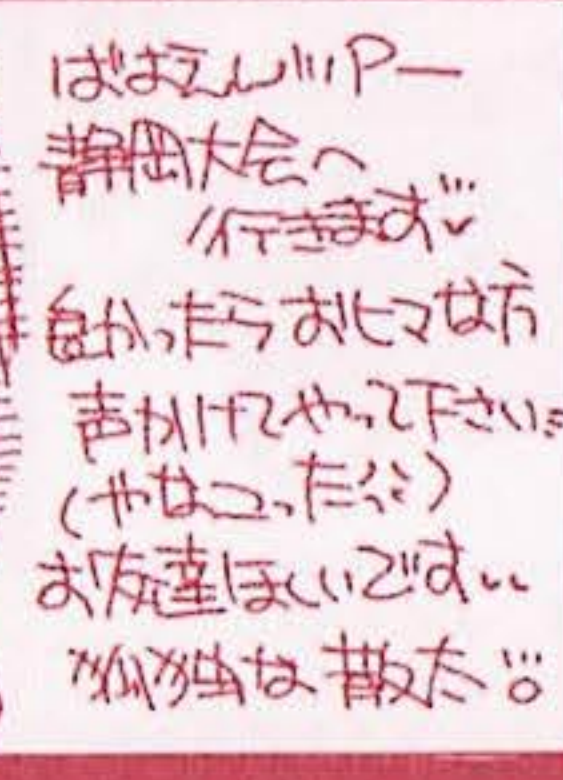 ばよえ〜ん!!!Pー
静岡大会へ
行きます
良かったらおヒマな方
声かけてやって下さい
(やなこった
お友達ほしいです
孤独な散た